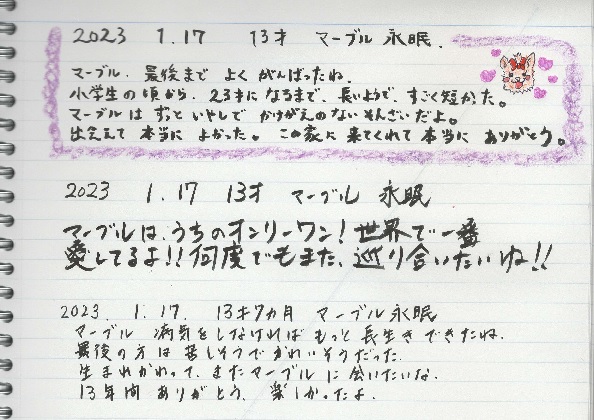 2023 1.17 13才 マーブル 永眠.
マーブル、最後まで よく がんばったね。
小学生の頃から、23才になるまで、長いようで、すごく短かった。
マーブルは ずっと いやしで かけがえのない そんざいだよ。
出会えて 本当に よかった。 この家に 来てくれて 本当に ありがとう。
2023 1.17 13才 マーブル 永眠
マーブルは、うちのオンリーワン! 世界で一番
愛してるよ!! 何度でもまた、巡り合いたいね!!
2023. 1.17. 13才7カ月 マーブル永眠
マーブル 病気をしなければ もっと 長生き できたね.
最後の方は 苦しそうで かわいそうだった.
生まれかわって、またマーブルに 会いたいな.
13年間 ありがとう. 楽しかったよ.